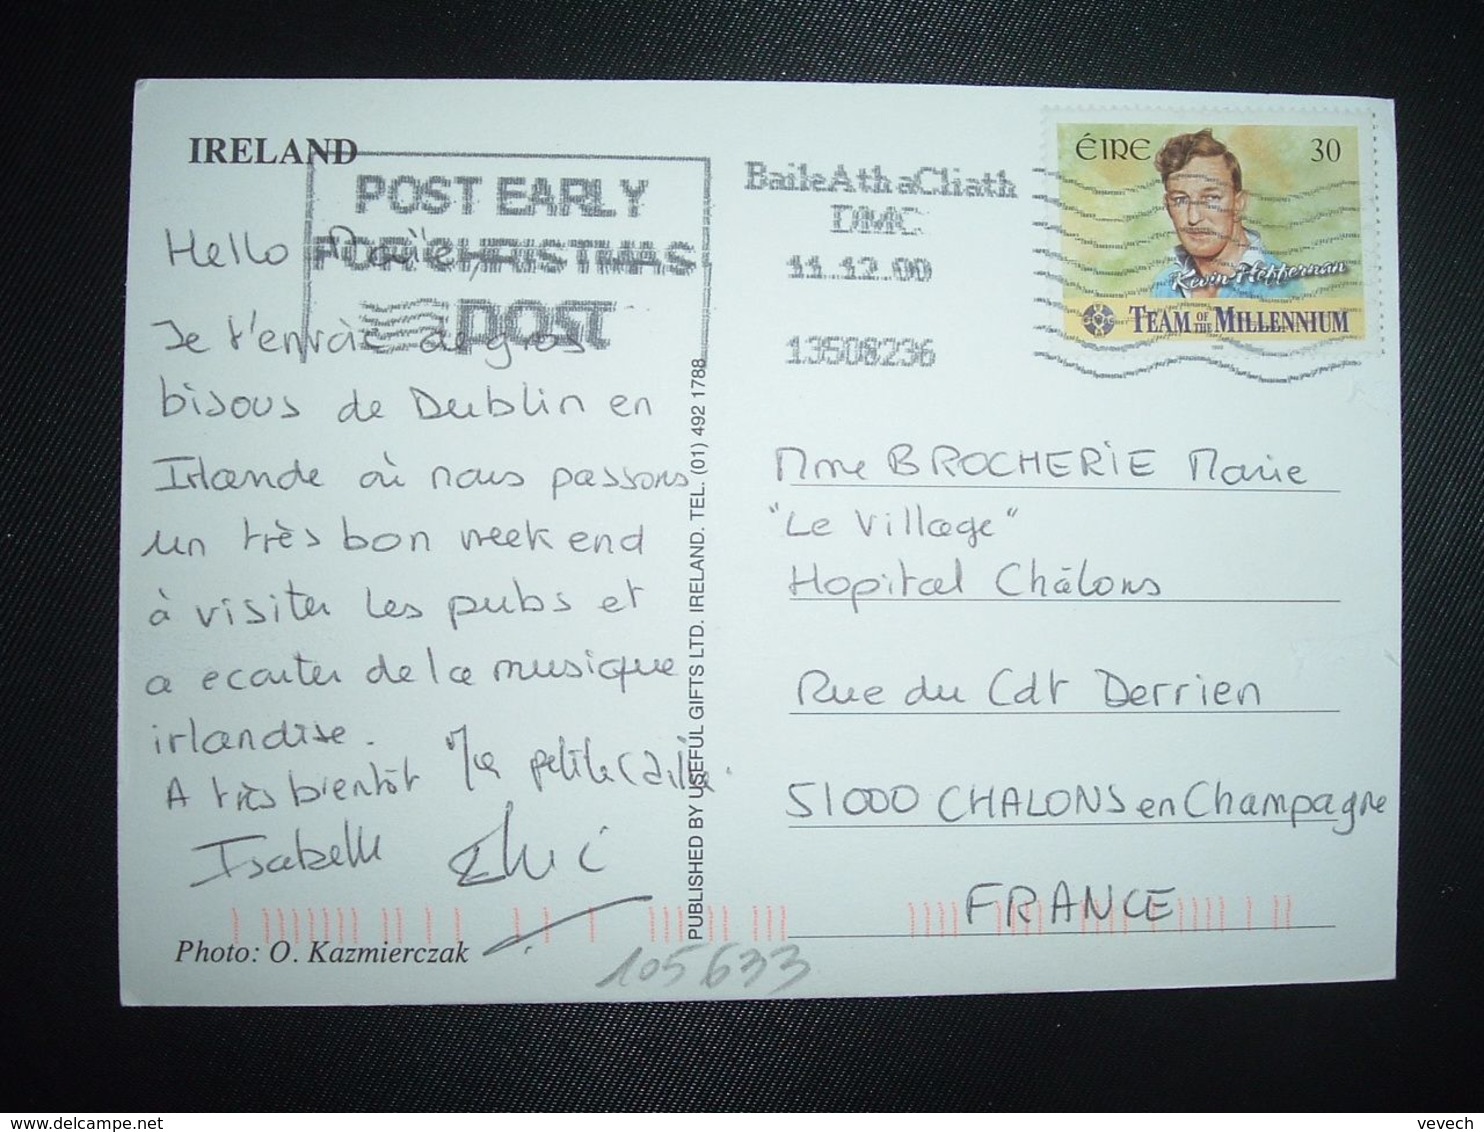 IRELAND
POST EARLY
FOR CHRISTMAS
POST
BaileAthaCliath
DMC
11.12.00
13508236
ÉIRE 30
Kevin Heffernan
TEAM OF THE MILLENNIUM
Hello
Je t'envoie de gros
bisous de Dublin en
Irlande où nous passons
un très bon week end
à visiter les pubs et
a ecouter de la musique
irlandaise.
A très bientôt "la petite
Isabelle
Photo: O. Kazmierczak
PUBLISHED BY USEFUL GIFTS LTD. IRELAND. TEL. (01) 492 1788
Mme BROCHERIE Marie
"Le Village"
Hopital Châlons
Rue du Cdt Derrien
51000 CHALONS en Champagne
FRANCE
105633
delcampe.net
vevech